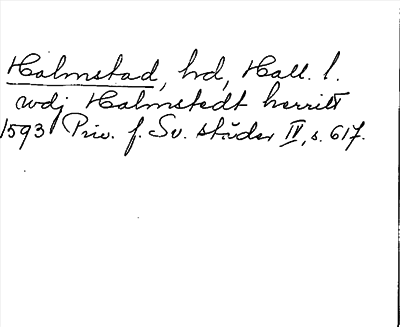 Halmstad, hd, Hall. l.
wdj Halmstedt herritt
1593 Priv. f. Sv. städer IV, s. 617.